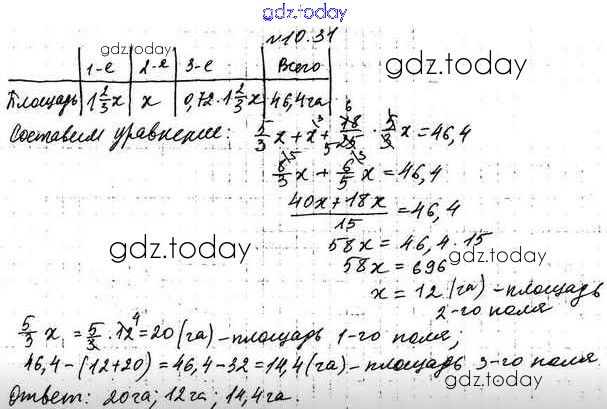 gdz.today
№10.31
gdz.today
gdz.today
1-е 2-е 3-е Всего
Площадь 1 2/3 x x 0,72·1 2/3 x 46,4 га
Составим уравнение: 5/3 x + x + 18/25 · 5/3 x = 46,4
8/3 x + 6/5 x = 46,4
(40x+18x)/15 = 46,4
gdz.today
58x = 46,4·15
gdz.today
58x = 696
x = 12 (га) – площадь
2-го поля
5/3 x = 5/3 · 12 = 20 (га) – площадь 1-го поля;
46,4 – (12+20) = 46,4 – 32 = 14,4 (га) – площадь 3-го поля
gdz.today
Ответ: 20га; 12га; 14,4га.